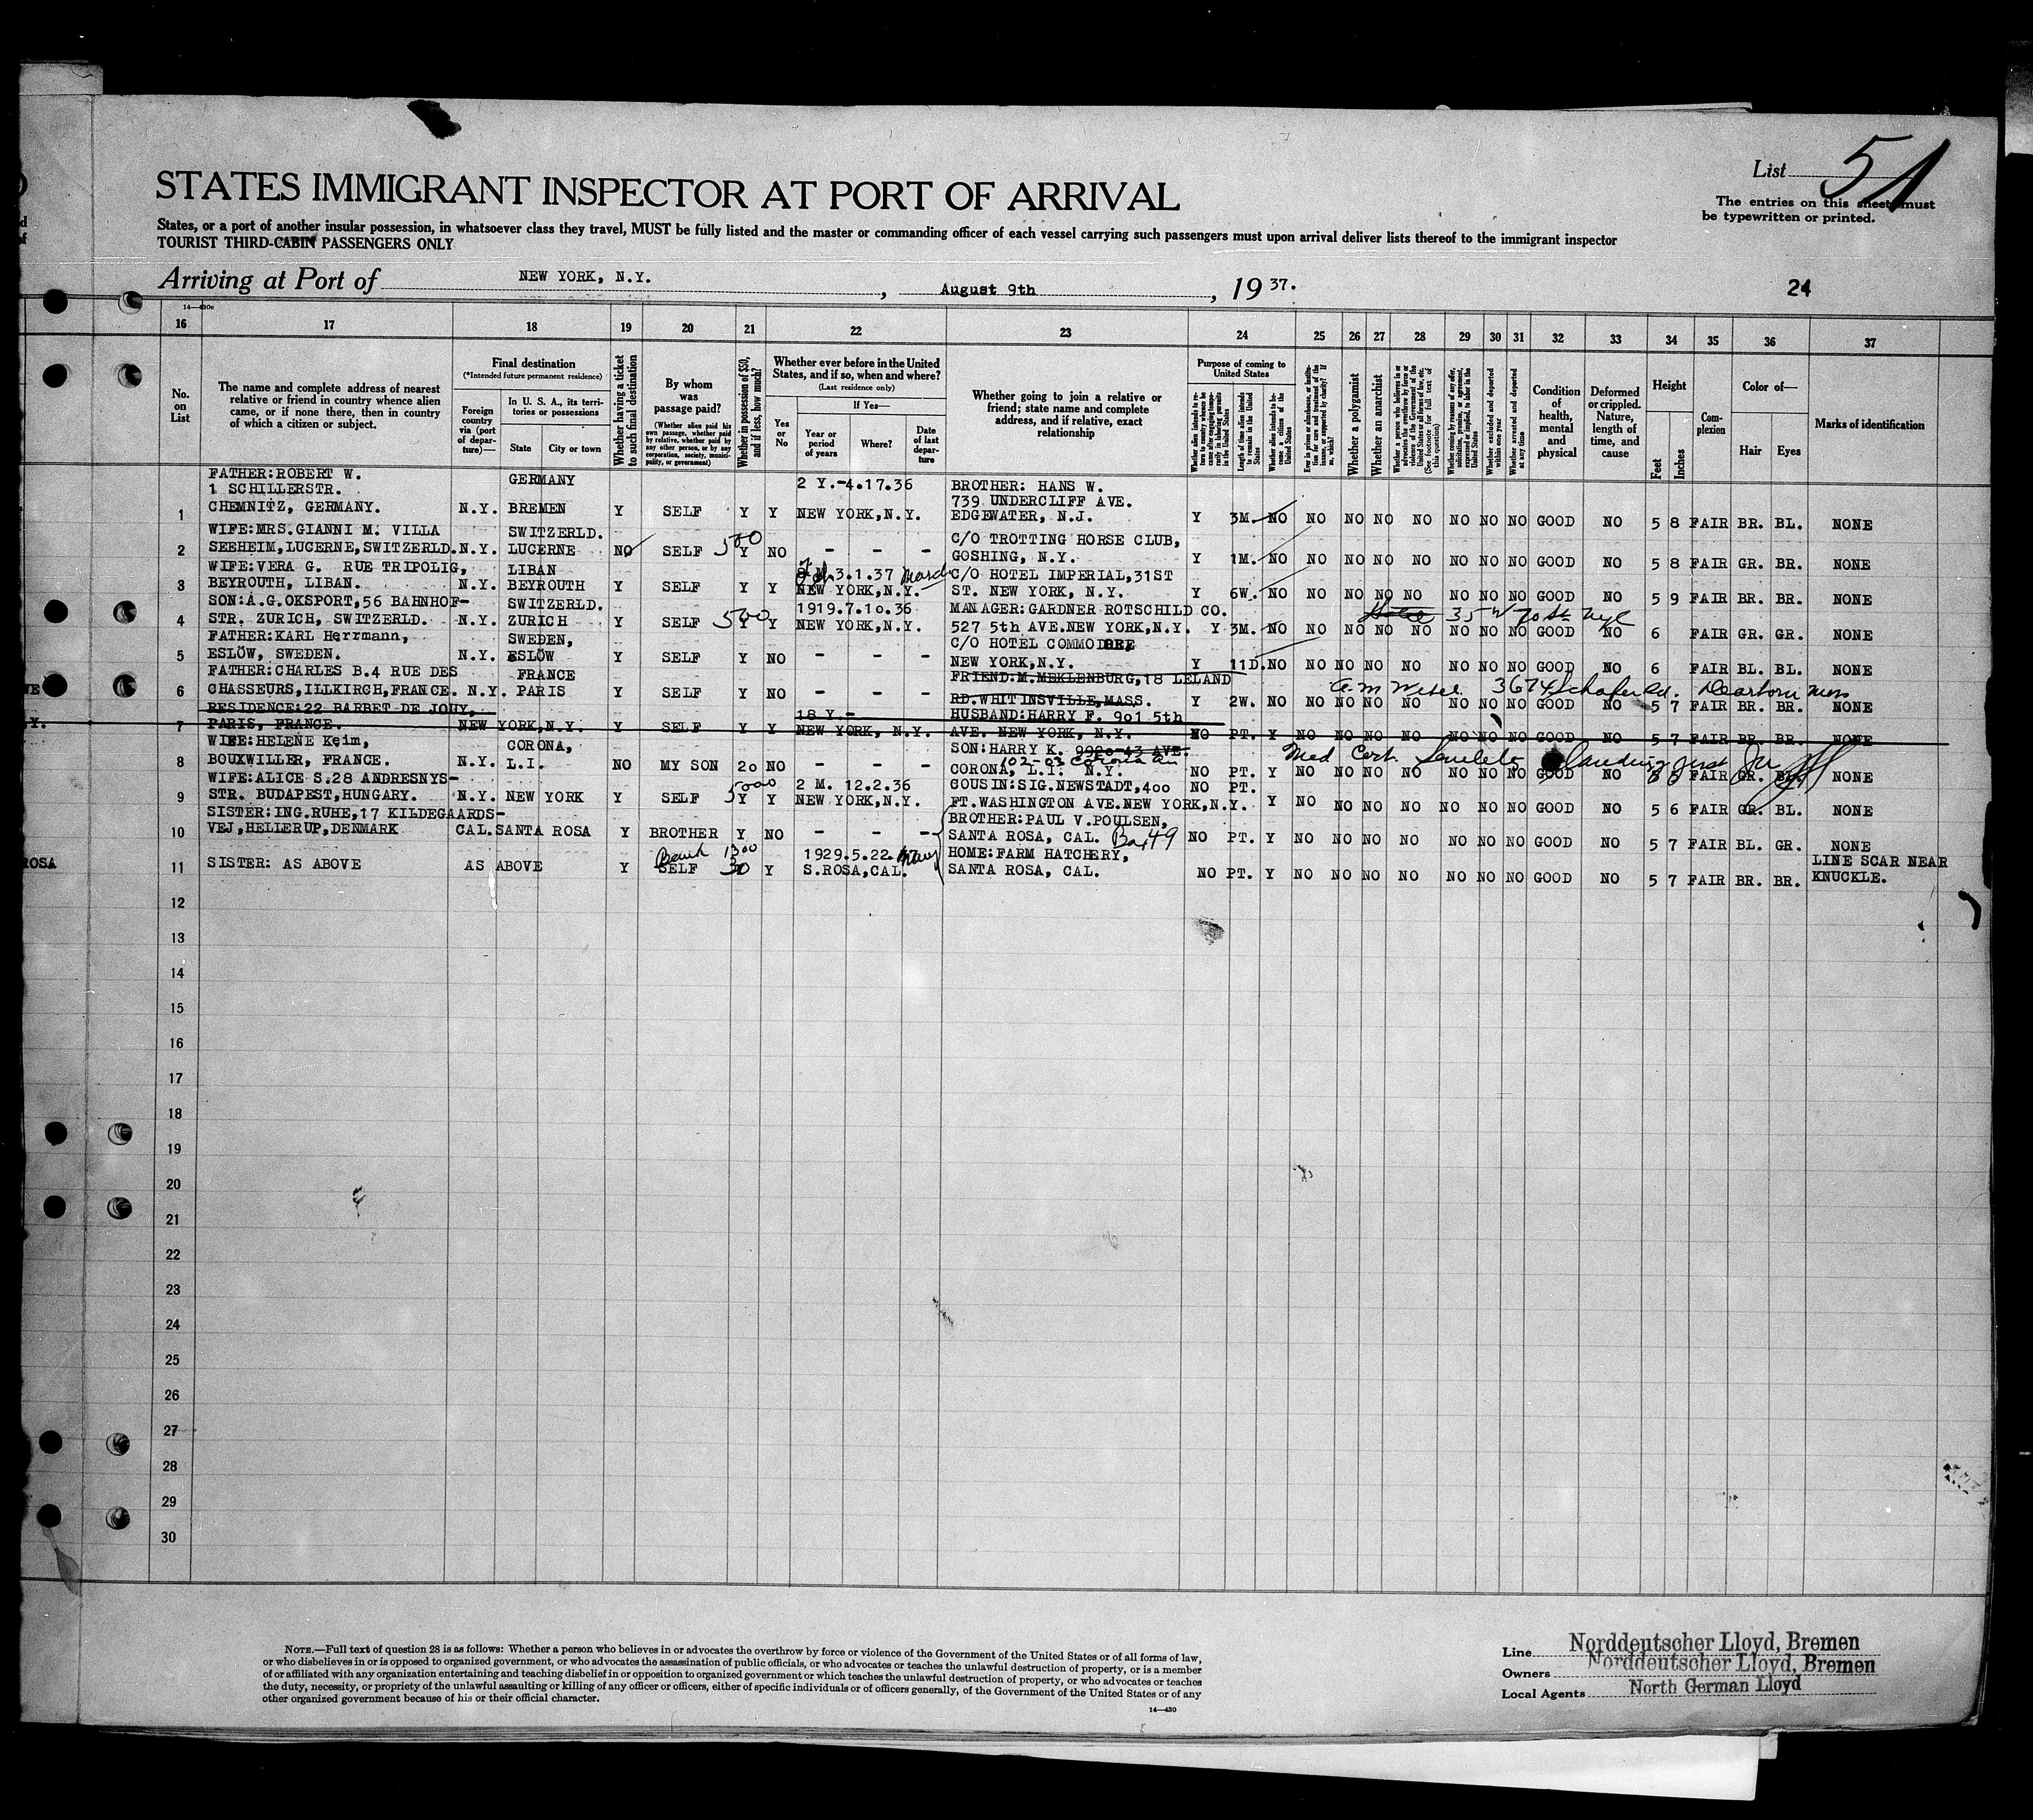 List 51
The entries on this sheet must
be typewritten or printed.
STATES IMMIGRANT INSPECTOR AT PORT OF ARRIVAL
States, or a port of another insular possession, in whatsoever class they travel, MUST be fully listed and the master or commanding officer of each vessel carrying such passengers must upon arrival deliver lists thereof to the immigrant inspector
TOURIST THIRD-CABIN PASSENGERS ONLY
Arriving at Port of NEW YORK, N.Y., August 9th, 1937.
24
14—430c
16 17 18 19 20 21 22 23 24 25 26 27 28 29 30 31 32 33 34 35 36 37
No. on List
The name and complete address of nearest relative or friend in country whence alien came, or if none there, then in country of which a citizen or subject.
Final destination
(*Intended future permanent residence)
Foreign country via (port of departure)—
In U. S. A., its territories or possessions
State
City or town
Whether having a ticket to such final destination
By whom was passage paid?
(Whether alien paid his own passage, whether paid by relative, whether paid by any other person, or by any corporation, society, municipality, or government)
Whether in possession of $50, and if less, how much?
Whether ever before in the United States, and if so, when and where?
(Last residence only)
Yes or No
If Yes—
Year or period of years
Where?
Date of last departure
Whether going to join a relative or friend; state name and complete address, and if relative, exact relationship
Purpose of coming to United States
Length of time alien intends to remain in the United States
Whether alien intends to become a citizen of the United States
Whether a polygamist
Whether an anarchist
Whether excluded and deported within one year
Whether arrested and deported at any time
Condition of health, mental and physical
Deformed or crippled. Nature, length of time, and cause
Height
Feet
Inches
Complexion
Color of—
Hair
Eyes
Marks of identification
FATHER:ROBERT W. GERMANY 2 Y.-4.17.36 BROTHER: HANS W.
1 SCHILLERSTR. 739 UNDERCLIFF AVE.
1 CHEMNITZ, GERMANY. N.Y. BREMEN Y SELF Y Y NEW YORK,N.Y. EDGEWATER, N.J. Y 3M. NO NO NO NO NO NO NO NO GOOD NO 5 8 FAIR BR. BL. NONE
WIFE:MRS.GIANNI M. VILLA SWITZERLD. 500 C/O TROTTING HORSE CLUB,
2 SEEHEIM,LUCERNE,SWITZERLD. N.Y. LUCERNE NO SELF Y NO - - - GOSHING, N.Y. Y 1M. NO NO NO NO NO NO NO NO GOOD NO 5 8 FAIR GR. BR. NONE
WIFE:VERA G. RUE TRIPOLIG, LIBAN 3.1.37 C/O HOTEL IMPERIAL,31ST
3 BEYROUTH, LIBAN. N.Y. BEYROUTH Y SELF Y Y NEW YORK,N.Y. ST. NEW YORK, N.Y. Y 6W. NO NO NO NO NO NO NO NO GOOD NO 5 9 FAIR BR. BR. NONE
SON:A.G.OKSPORT,56 BAHNHOF- SWITZERLD. 1919.7.10.36 MANAGER:GARDNER ROTSCHILD CO. 35 W 70 St. Nyc
4 STR. ZURICH, SWITZERLD. N.Y. ZURICH Y SELF 500 Y Y NEW YORK,N.Y. 527 5th AVE.NEW YORK,N.Y. Y 3M. NO NO NO NO NO NO NO NO GOOD NO 6 FAIR GR. GR. NONE
FATHER:KARL Herrmann, SWEDEN, C/O HOTEL COMMODORE
5 ESLÖW, SWEDEN. N.Y. ESLÖW Y SELF Y NO - - - NEW YORK,N.Y. Y 11D. NO NO NO NO NO NO NO NO GOOD NO 6 FAIR BL. BL. NONE
FATHER:CHARLES B.4 RUE DES FRANCE FRIEND:M.MEKLENBURG,18 LELAND
6 CHASSEURS,ILLKIRCH,FRANCE. N.Y. PARIS Y SELF Y NO - - - RD.WHITINSVILLE,MASS. Y 2W. NO NO NO NO NO NO NO NO GOOD NO 5 7 FAIR BR. BR. NONE
3674 Schafer Rd. Dearborn
RESIDENCE:22 BARBET DE JOUY, 18 Y.- HUSBAND:HARRY F. 901 5th
7 PARIS, FRANCE. NEW YORK,N.Y. Y SELF Y Y NEW YORK, N.Y. AVE. NEW YORK, N.Y. NO PT. Y NO NO NO NO NO NO NO GOOD NO 5 7 FAIR BR. BR. NONE
WIFE:HELENE Keim, CORONA, SON:HARRY K. 9920-43 AVE. Med Cert.
102-03 Corona Av
8 BOUXWILLER, FRANCE. N.Y. L.I. NO MY SON 20 NO - - - CORONA, L.I. N.Y. NO PT. Y NO NO NO NO NO NO NO GOOD NO FAIR GR. NONE
WIFE:ALICE S.28 ANDRESNYS- 5000 2 M. 12.2.36 COUSIN:SIG.NEWSTADT,400 NO PT.
9 STR. BUDAPEST,HUNGARY. N.Y. NEW YORK Y SELF Y Y NEW YORK,N.Y. FT.WASHINGTON AVE.NEW YORK,N.Y. Y NO NO NO NO NO NO NO GOOD NO 5 6 FAIR GR. BL. NONE
SISTER:ING.RUHE,17 KILDEGAARDS- BROTHER:PAUL V.POULSEN,
10 VEJ,HELLERUP,DENMARK CAL. SANTA ROSA Y BROTHER Y NO - - - SANTA ROSA, CAL. Box 49 NO PT. Y NO NO NO NO NO NO NO GOOD NO 5 7 FAIR BL. GR. NONE
Bank 1300 1929.5.22. HOME:FARM HATCHERY, LINE SCAR NEAR
11 SISTER: AS ABOVE AS ABOVE Y SELF 30 Y S.ROSA,CAL. SANTA ROSA, CAL. NO PT. Y NO NO NO NO NO NO NO GOOD NO 5 7 FAIR BR. BR. KNUCKLE.
ROSA
12
13
14
15
16
17
18
19
20
21
22
23
24
25
26
27
28
29
30
NOTE.—Full text of question 28 is as follows: Whether a person who believes in or advocates the overthrow by force or violence of the Government of the United States or of all forms of law,
or who disbelieves in or is opposed to organized government, or who advocates the assassination of public officials, or who advocates or teaches the unlawful destruction of property, or is a member
of or affiliated with any organization entertaining and teaching disbelief in or opposition to organized government or which teaches the unlawful destruction of property, or who advocates or teaches
the duty, necessity, or propriety of the unlawful assaulting or killing of any officer or officers, either of specific individuals or of officers generally, of the Government of the United States or of any
other organized government because of his or their official character.
14—430
Line Norddeutscher Lloyd, Bremen
Owners Norddeutscher Lloyd, Bremen
Local Agents North German Lloyd